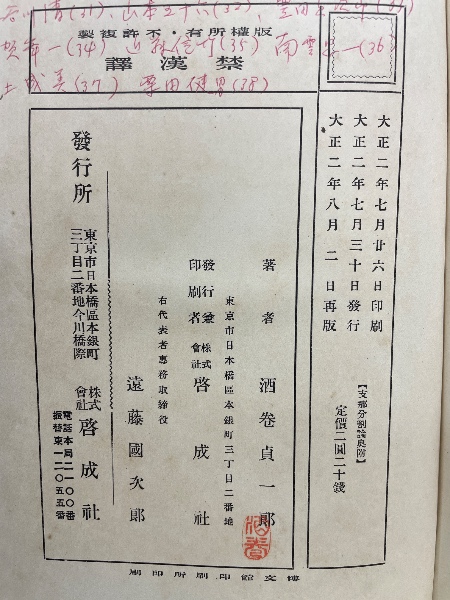 山本五十六(32)
一(34) 近 信竹(35) 南雲忠一(36)
(37) 栗田健男(38)
版權所有・不許複製
禁漢譯
大正二年七月廿六日印刷
大正二年七月三十日發行
大正二年八月二日再版
【支那分割論奥附】
定價二圓二十錢
著者 酒卷貞一郎
東京市日本橋區本銀町三丁目二番地
發行兼印刷者 株式會社 啓成社
右代表者專務取締役
遠藤國次郎
發行所
東京市日本橋區本銀町
三丁目二番地今川橋際
株式會社 啓成社
電話本局二一〇〇番
振替東一二〇五五番
博文館印刷所印刷